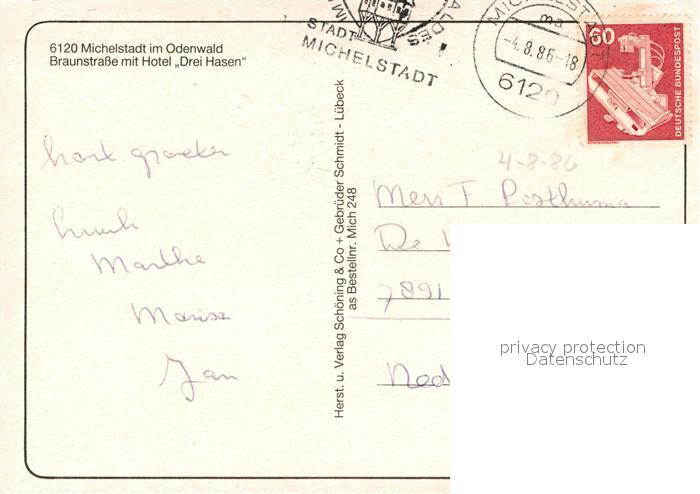 6120 Michelstadt im Odenwald
Braunstraße mit Hotel „Drei Hasen"
STADT
MICHELSTADT
MICHELSTADT
ma
-4.8.86-18
6120
60
DEUTSCHE BUNDESPOST
hart groeten
Marthe
Jan
Herst. u. Verlag Schöning & Co + Gebrüder Schmidt - Lübeck
as Bestellnr. Mich 248
4-8-86
Posthuma
De
7891
Ned
privacy protection
Datenschutz